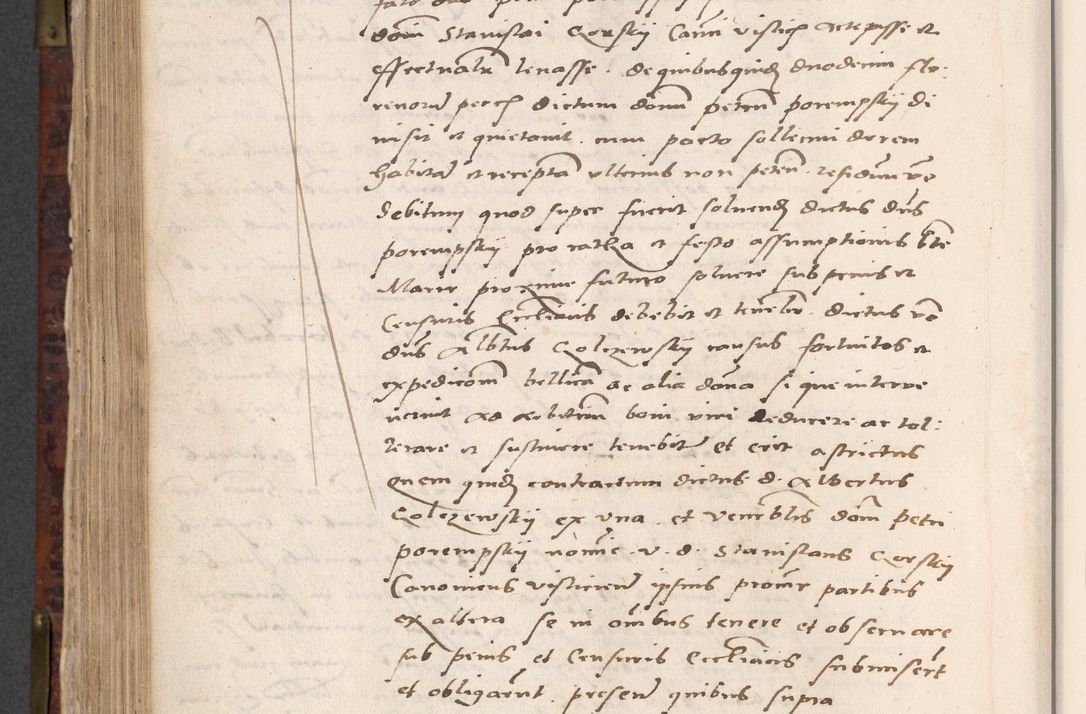 dom̃ Stanislai Gorskij Can̄ci vislicẽ recepisse et
effectualr̃ leuasse. de quibusquid̃ duodecim flo:
renorũ per eũ dictum domũ petrũ porempskij di
misit et quietauit. cum pacto sollemni de rem
habitã et receptã vlterius non petẽn. residuũ vo
debitum quod super fuerit soluendũ dictus dñs
porempskij pro ratha et festo assumptionis bt̃e
Marie proxime futuro soluere sub penis et
Censuris Ecclĩasticis debebit et tenebr̃. dictus vo
dñs Albt̃us Golczewskij casus fortuitos et
expedicom̃ bellicã ac alia dãna si que interue
nerint ad arbitriũ boni viri deducere ac tol:
lerare et sustinere tenebitr̃ et erit astrictus
quem quid̃ contractum dictus d. Albertus
Golczewskij ex vna. et venerblis dom̃ petri
porempskij noĩe. v. d. Stanislaus Gorskij
Canonicus visliciẽn ipsius procũr partibus
ex altera se in oĩbus tenere et obseruare
sub penis et Censuris Ecclĩasticis submisert̃
et obligarũt. presen̄ quibus supra